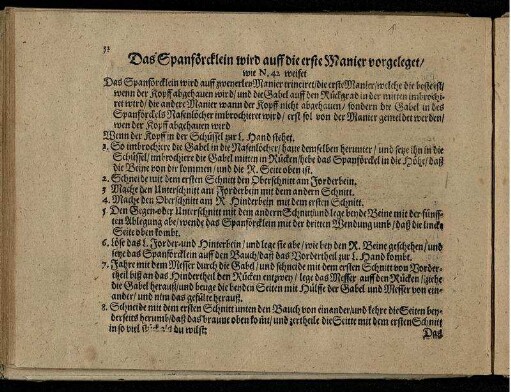 32
Das Spanförcklein wird auff die erste Manier vorgeleget/
wie N. 42 weiset
Das Spanförcklein wird auff zweyerley Manier trinciret/ die erste Manier/ welche die beste ist/
wen der Kopff abgehauen wird/ und die Gabel auff den Rückgrad in der mitten imbrochi-
ret wird/ die andere Manier wann der Kopff nicht abgehauen/ sondern die Gabel in des
Spanförckels Nasenlöcher imbrochiret wird/ erst sol von der Manier gemeldet werden/
wen der Kopff abgehauen wird
Wenn der Kopff in der Schüssel zur L. Hand stehet.
1. So imbrochiere die Gabel in die Nasenlöcher/ haue denselben herunter/ und setze ihn in die
Schüssel/ imbrochiere die Gabel mitten in Rücken/ hebe das Spanförckel in die Höhe/ daß
die Beine vor dir kommen/ und die R. Seite oben ist.
2. Schneide mit dem ersten Schnitt den Oberschnitt am Forderbein.
3 Mach den Unterschnitt am Forderbein mit dem andern Schnitt.
4. Mache den Oberschnitt am R. Hinderbein mit dem ersten Schnitt.
5 Den Gegen-oder Unterschnitt mit dem andern Schnitt/ und lege beyde Beine mit der fünff-
ten Ablegung abe/ wende das Spanförcklein mit der dritten Wendung umb/ daß die lincke
Seite oben kombt.
6. Löse das L. Forder-und Hinterbein/ und lege sie abe/ wie bey den R. Beine geschehen/ und
setze das Spanförcklein auff den Bauch/ daß das Vordertheil zur L. Hand kombt.
7. Fahre mit dem Messer durch die Gabel/ und schneide mit dem ersten Schnitt von Vorder-
theil biß an das Hindertheil den Rücken entzwey/ lege das Messer auff den Rücken/ ziehe
die Gabel herauß/ und beuge die beyden Seiten mit Hülffe der Gabel und Messer von ein-
ander/ und nim das gefülte herauß.
8. Schneide mit dem ersten Schnitt unten den Bauch von einander/ und kehre die Seiten bey-
derseits herumb/ daß das braune oben komt/ und zertheile die Seite mit dem ersten Schnitt
in so viel stück als du wilst:
Das